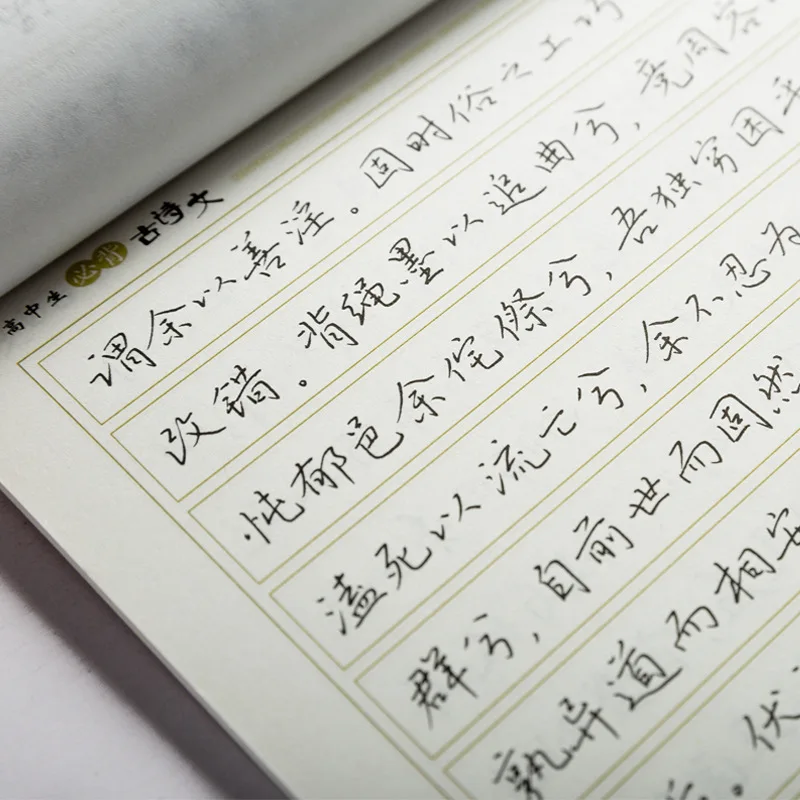 高中生必背古诗文
谓余以善淫。固时俗之工巧
改错。背绳墨以追曲兮，竞周容
忳郁邑余侘傺兮，吾独穷困乎
溘死以流亡兮，余不忍为
群兮，自前世而固然
孰异道而相安
。伏